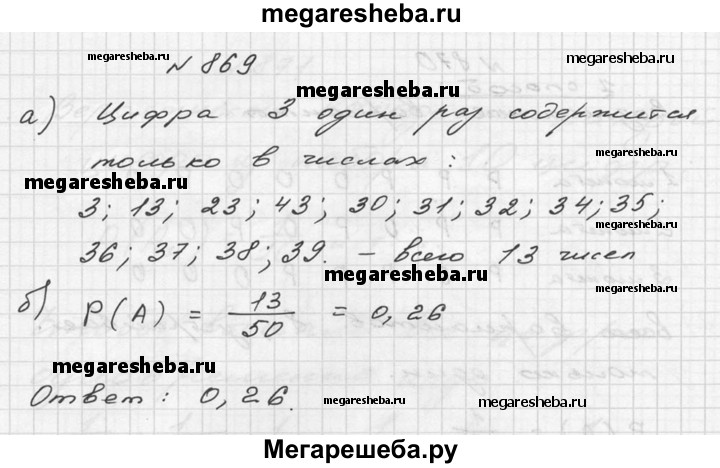 megaresheba.ru
№ 869
megaresheba.ru
megaresheba.ru
megaresheba.ru
а) Цифра 3 один раз содержится
только в числах:
megaresheba.ru
megaresheba.ru
3; 13; 23; 43; 30; 31; 32; 34; 35;
36; 37; 38; 39. – всего 13 чисел
megaresheba.ru
megaresheba.ru
б) P(A) = 13/50 = 0,26
megaresheba.ru
Ответ: 0,26.
megaresheba.ru
Мегарешеба.ру